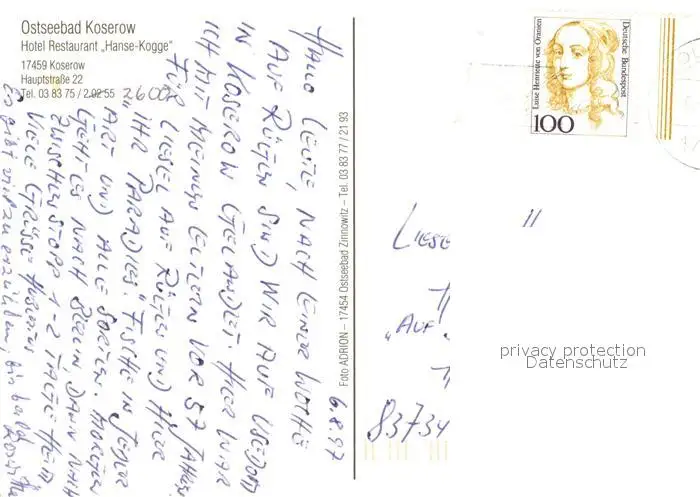 Ostseebad Koserow
Hotel Restaurant „Hanse-Kogge"
17459 Koserow
Hauptstraße 22
Tel. 03 83 75 / 2 02 55
26007
6.8.97
HALLO LEUTE, NACH EINER WOCHE
AUF RÜGEN SIND WIR AUF USEDOM
IN KOSEROW GELANDET. HIER WAR
ICH MIT MEINEN ELTERN VOR 57 JAHREN
FÜR LIESEL AUF RÜGEN UND HIER
„IHR PARADIES." FISCHE IN JEDER
ART UND ALLE SORTEN. MORGEN
GEHT ES NACH BERLIN DANN NACH
ZWISCHENSTOPP 1-2 TAGE HEIM
VIELE GRÜSSE
Es gibt viel zu erzählen, bis bald
Foto ADRION – 17454 Ostseebad Zinnowitz – Tel. 03 83 77 / 21 93
Luise Henriette von Oranien
Deutsche Bundespost
100
LIESE
„AUF
83734
privacy protection
Datenschutz